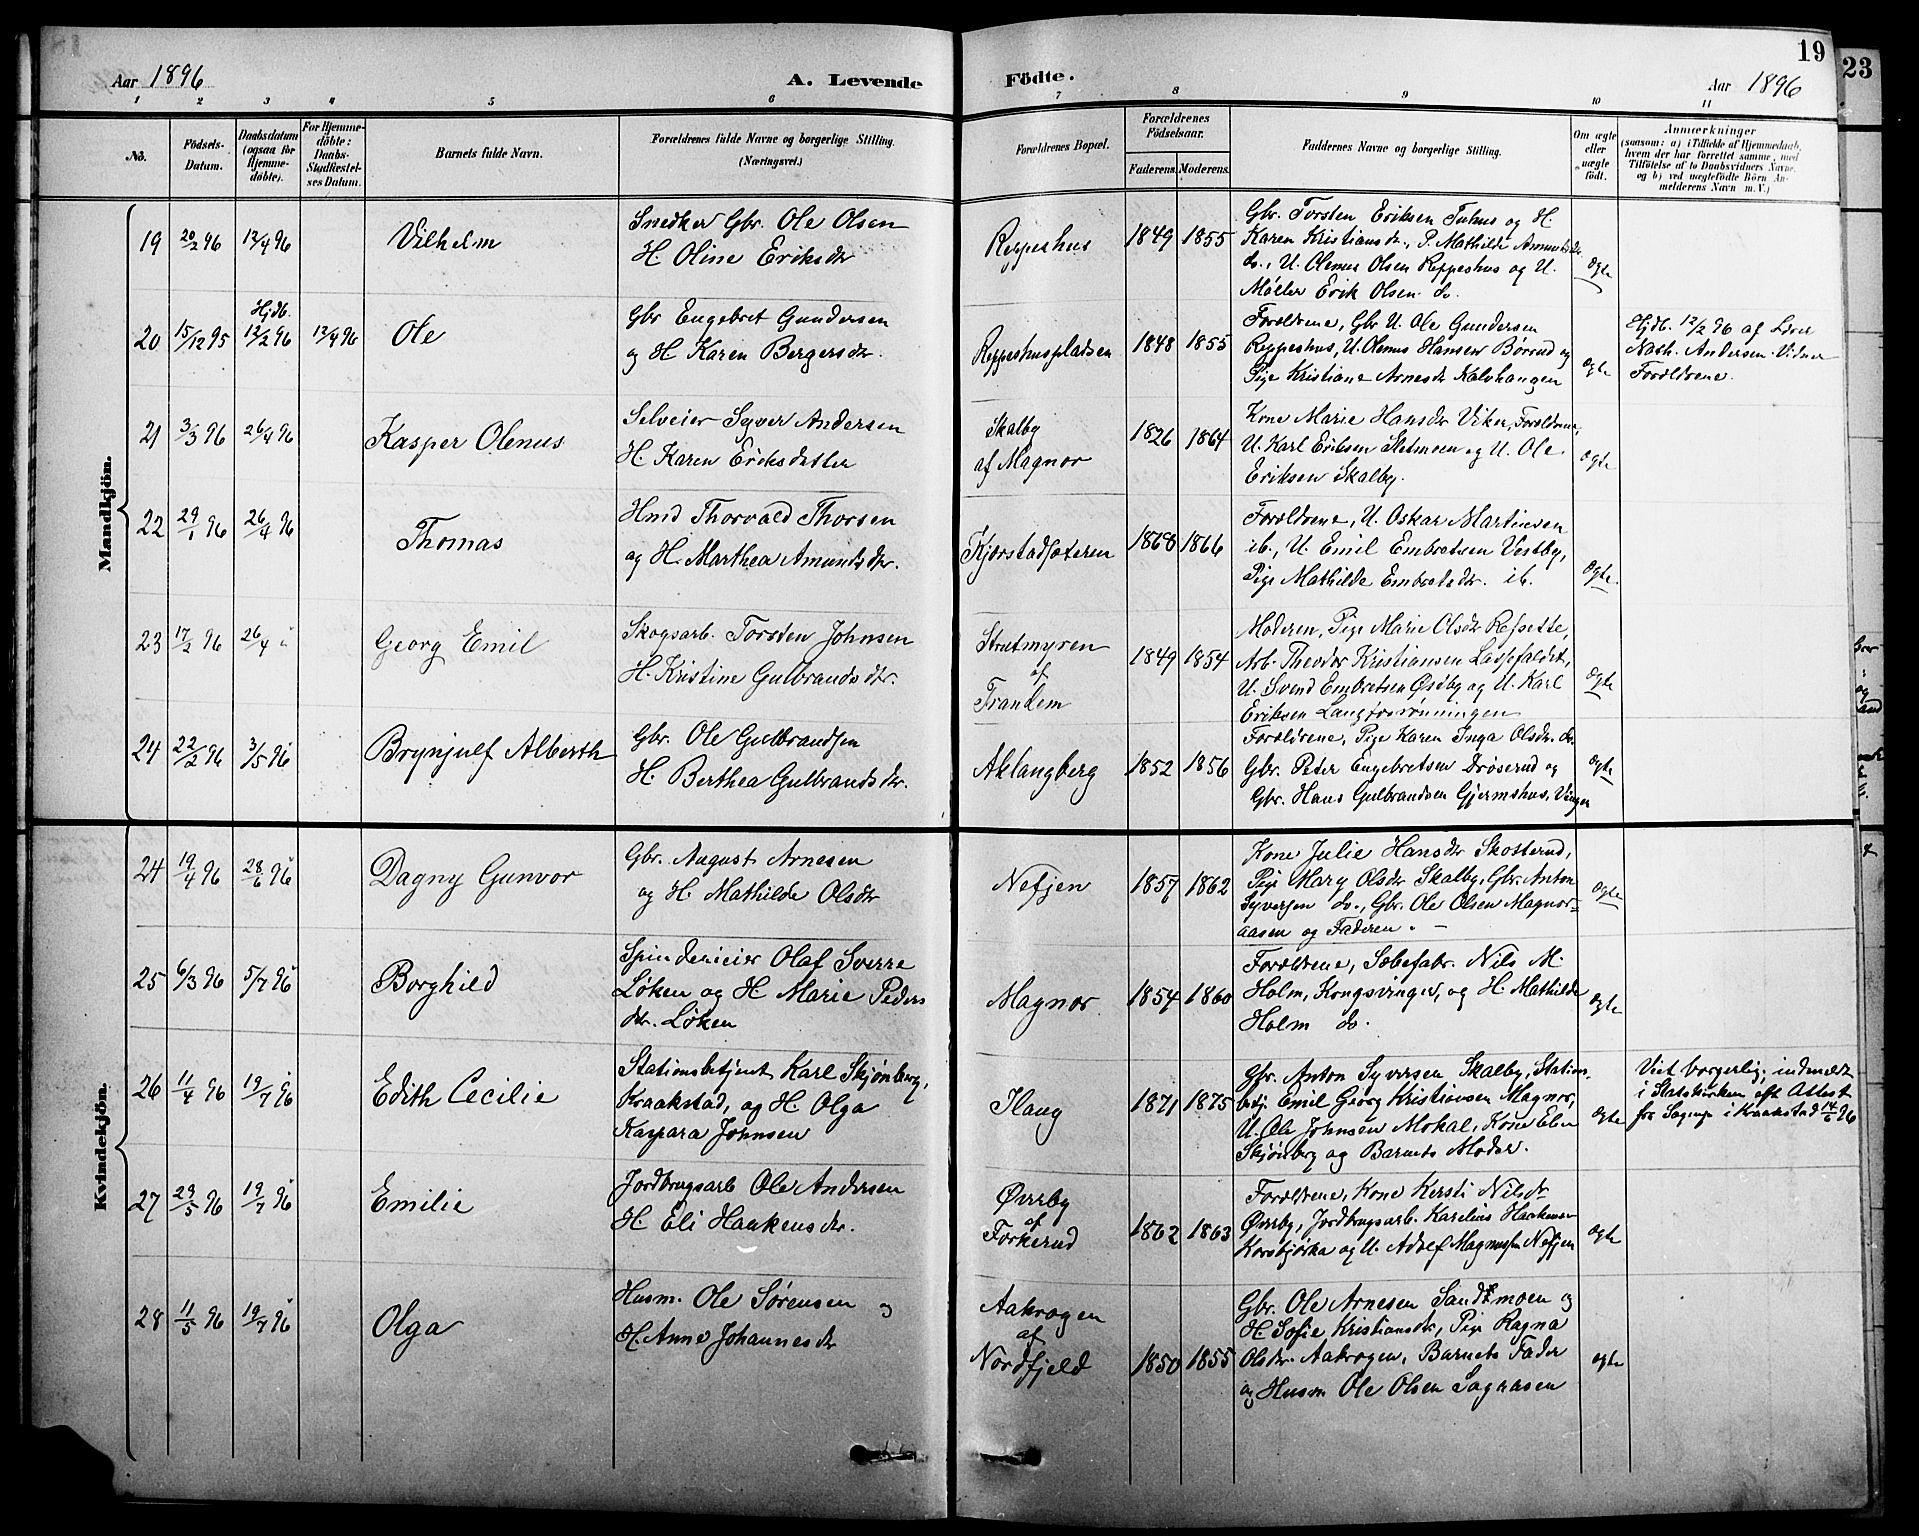 19
23
Aar 1896
A. Levende
Födte.
Aar 1896
1 2 3 4 5 6 7 8 9 10 11
No.
Födsels-Datum.
Daabsdatum (ogsaa for Hjemme-döbte).
For Hjemme-döbte: Daabs-Stadfæstel-ses Datum.
Barnets fulde Navn.
Forældrenes fulde Navne og borgerlige Stilling.
(Næringsvei.)
Forældrenes Bopæl.
Forældrenes Födselsaar.
Faderens. Moderens.
Faddernes Navne og borgerlige Stilling.
Om ægte eller uægte födt.
Anmærkninger
(saasom: a) i Tilfælde af Hjemmedaab,
hvem der har forrettet samme, med
Tilföielse af to Daabsvidners Navne,
og b) ved uægtefödte Börn An-
melderens Navn m. V.)
Mandkjön.
19 20/2 96 12/4 96 Vilhelm
Snedker Gbr. Ole Olsen
H. Oline Eriksdr
Reppeshus 1849 1855
Gbr. Torsten Eriksen Tuhus og H.
Karen Kristiansdr., P. Mathilde Amundsdr.
do., U. Olenus Olsen Reppeshus og U.
Møller Erik Olsen do.
Ægte
20 15/12 95 Hjdb. 12/2 96 12/4 96 Ole
Gbr Engebret Gundersen
og H Karen Bergersdr.
Reppeshuspladsen 1848 1855
Forældrene, Gbr U. Ole Gundersen
Reppeshus, U. Olenus Hansen Børrud og
Pige Kristiane Arnesdr Kalvhaugen
Ægte
Hjdb. 12/2 96 af Lærer
Nath. Andersen. Vidner
Forældrene.
21 3/3 96 26/4 96 Kasper Olenus
Selveier Syver Andersen
H. Karen Eriksdatter
Skalby
af Magnor 1826 1864
Kone Marie Hansdr Viken, Forældrene,
U. Karl Eriksen Sletmoen og U. Ole
Eriksen Skalby.
Ægte
22 29/1 96 26/4 96 Thomas
Hmd Thorvald Thorsen
og H. Marthea Amundsdr.
Kjørstadsæteren 1868 1866
Forældrene, U. Oskar Martinsen
ib., U. Emil Embretsen Vestby,
Pige Mathilde Embretsdr. ib.
Ægte.
23 17/2 96 26/4 " Georg Emil
Skogsarb. Torsten Johnsen
H. Kristine Gulbrandsdtr.
Strutmyren
af
Trandem 1849 1854
Moderen, Pige Marie Olsdr Refsette,
Arb. Theodor Kristiansen Lassefaldet,
U. Svend Embretsen Øsby og U. Karl
Eriksen Langforrønningen
Ægte
24 22/2 96 3/5 96 Brynjulf Alberth
Gbr. Ole Gulbrandsen
H. Berthea Gulbrandsdr.
Aklangberg 1852 1856
Forældrene, Pige Karen Inga Olsdr. do.
Gbr. Peter Engebretsen Drøserud og
Gbr. Hans Gulbrandsen Gjermshus, Vinger
Ægte
Kvindekjön.
24 19/4 96 28/6 96 Dagny Gunvor
Gbr. August Arnesen
og H. Mathilde Olsdr
Nefjen 1857 1862
Kone Julie Hansdr Skotterud,
Pige Mary Olsdr Skalby, Gbr. Anton
Syversen do., Gbr. Ole Olsen Magnor-
aasen og Faderen. —
Ægte
25 6/3 96 5/7 96 Borghild
Spinderieier Olaf Sverre
Løken og H. Marie Peders
dtr. Løken
Magnor 1854 1860
Forældrene, Sæbefabr. Nils M.
Holm, Kongsvinger, og H. Mathilde
Holm do.
Ægte
26 11/4 96 19/7 96 Edith Cecilie
Stationsbetjent Karl Skjønberg,
Kraakstad, og H. Olga
Kaspara Johnsen
Haug 1871 1875
Gbr. Anton Syversen Skalby, Stations-
betj. Emil Georg Kristiansen Magnor,
U. Ole Johnsen Mokal, Kone Elen
Skjønberg og Barnets Moder.
Ægte
Viet borgerlig, indmeldt
i Statskirken eft. Attest
fra Sognep. i Kraakstad 14/6 96
27 29/5 96 19/7 96 Emilie
Jordbrugsarb Ole Andersen
H. Eli Haakensdr.
Øvrby
af
Forkerud 1862 1863
Forældrene, Kone Kersti Nilsdr
Øvrby, Jordbrugsarb. Karelius Haakensen
Korsbjørka og U. Adolf Magnussen Nefjen
Ægte
28 11/5 96 19/7 96 Olga
Husm. Ole Sørensen og
H. Anne Johannesdr
Aakrogen
af
Nordfjeld 1850 1855
Gbr. Ole Arnesen Sandmoen og
H. Sofie Kristiansdr, Pige Ragna
Olsdr. Aakrogen, Barnets Fader
og Husm Ole Olsen Sagaasen
Ægte